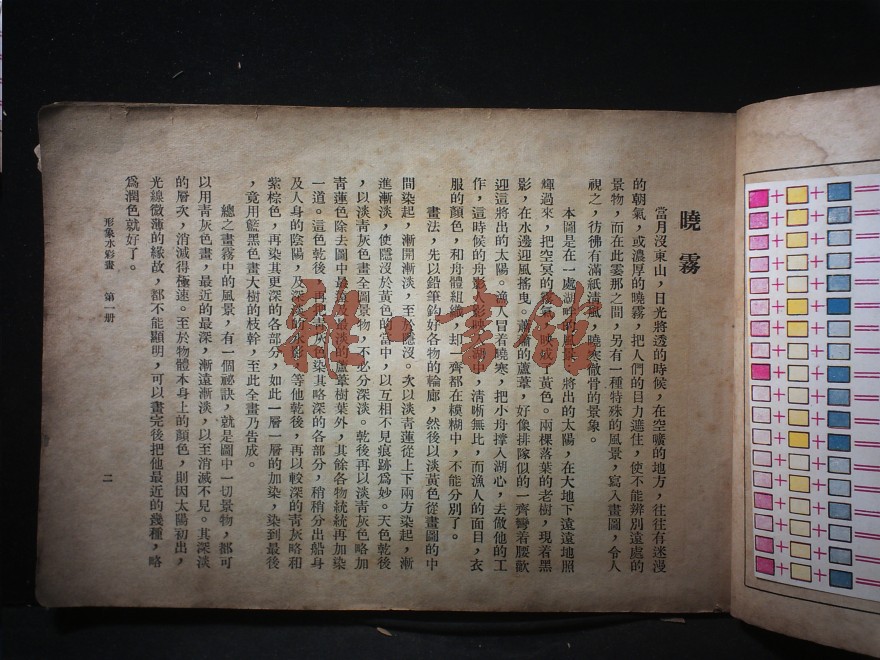 曉霧
當月沒東山，日光將透的時候，在空曠的地方，往往有迷漫
的朝氣，或濃厚的曉霧，把人們的目力遮住，使不能辨別遠處的
景物，而在此霎那之間，另有一種特殊的風景，寫入畫圖，令人
視之，彷彿有滿紙清風，曉寒徹骨的景象。
本圖是在一處湖畔的風景，將出的太陽，在大地下遠遠地照
輝過來，把空冥的霧氣，映成了黃色。兩棵落葉的老樹，現着黑
影，在水邊迎風搖曳。蕭蕭的蘆葦，好像排隊似的一齊彎着腰歡
迎這將出的太陽。漁人冒着曉寒，把小舟撐入湖心，去做他的工
作，這時候的舟影人影映入湖中，清晰無比，而漁人的面目，衣
服的顏色，和舟體組織，却一齊都在糢糊中，不能分別了。
畫法，先以鉛筆鈎好各物的輪廓，然後以淡黃色從畫圖的中
間染起，漸開漸淡，至於隱沒。次以淡青蓮從上下兩方染起，漸
進漸淡，使隱沒於黃色的當中，以互相不見痕跡爲妙。天色乾後
，以淡青灰色畫全圖景物，不必分深淡。乾後再以淡青灰色略加
青蓮色除去圖中最遠及最淡的蘆葦樹葉外，其餘各物統統再加染
一道。這色乾後，再把青灰色染其略深的各部分，稍稍分出船身
及人身的陰陽，及深淡的水影，等他乾後，再以較深的青灰略和
紫棕色，再染其更深的各部分，如此一層一層的加染，染到最後
，竟用藍黑色畫大樹的枝幹，至此全畫乃告成。
總之畫霧中的風景，有一個祕訣，就是圖中一切景物，都可
以用青灰色畫，最近的最深，漸遠漸淡，以至消滅不見。其深淡
的層次，消滅得極速。至於物體本身上的顏色，則因太陽初出，
光線微薄的緣故，都不能顯明，可以畫完後把他最近的幾種，略
爲潤色就好了。
形象水彩畫 第一册
二